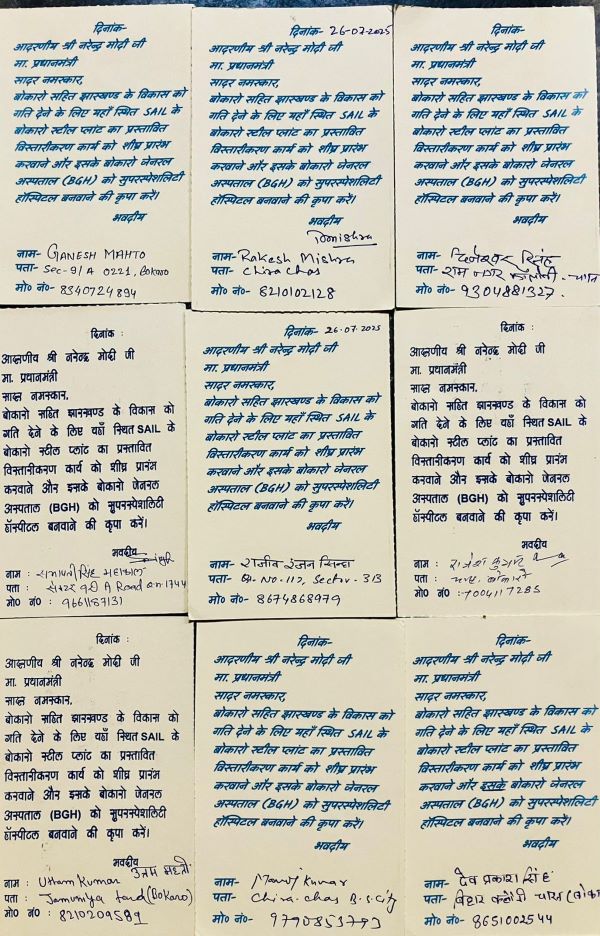 दिनांक-
आदरणीय श्री नरेन्द्र मोदी जी
मा. प्रधानमंत्री
सादर नमस्कार,
बोकारो सहित झारखण्ड के विकास को
गति देने के लिए यहाँ स्थित SAIL के
बोकारो स्टील प्लांट का प्रस्तावित
विस्तारीकरण कार्य को शीघ्र प्रारंभ
करवाने और इसके बोकारो जेनरल
अस्पताल (BGH) को सुपरस्पेशलिटी
हॉस्पिटल बनवाने की कृपा करें।
भवदीय
नाम- GANESH MAHTO
पता- Sec-9/A 0221, Bokaro
मो० नं०- 8340724894
दिनांक- 26-07-2025
आदरणीय श्री नरेन्द्र मोदी जी
मा. प्रधानमंत्री
सादर नमस्कार,
बोकारो सहित झारखण्ड के विकास को
गति देने के लिए यहाँ स्थित SAIL के
बोकारो स्टील प्लांट का प्रस्तावित
विस्तारीकरण कार्य को शीघ्र प्रारंभ
करवाने और इसके बोकारो जेनरल
अस्पताल (BGH) को सुपरस्पेशलिटी
हॉस्पिटल बनवाने की कृपा करें।
भवदीय
नाम- Rakesh Mishra
पता- Chira chas
मो० नं०- 8210102128
दिनांक-
आदरणीय श्री नरेन्द्र मोदी जी
मा. प्रधानमंत्री
सादर नमस्कार,
बोकारो सहित झारखण्ड के विकास को
गति देने के लिए यहाँ स्थित SAIL के
बोकारो स्टील प्लांट का प्रस्तावित
विस्तारीकरण कार्य को शीघ्र प्रारंभ
करवाने और इसके बोकारो जेनरल
अस्पताल (BGH) को सुपरस्पेशलिटी
हॉस्पिटल बनवाने की कृपा करें।
भवदीय
नाम- सिंह
पता- राम नगर कॉलोनी
मो० नं०- 9304881327.
दिनांक :
आदरणीय श्री नरेन्द्र मोदी जी
मा. प्रधानमंत्री
सादर नमस्कार,
बोकारो सहित झारखण्ड के विकास को
गति देने के लिए यहाँ स्थित SAIL के
बोकारो स्टील प्लांट का प्रस्तावित
विस्तारीकरण कार्य को शीघ्र प्रारंभ
करवाने और इसके बोकारो जेनरल
अस्पताल (BGH) को सुपरस्पेशलिटी
हॉस्पिटल बनवाने की कृपा करें।
भवदीय
नाम : सिंह
पता : सेक्टर A Road 1744
मो० नं० - 9661187131
दिनांक- 26.07.2025
आदरणीय श्री नरेन्द्र मोदी जी
मा. प्रधानमंत्री
सादर नमस्कार,
बोकारो सहित झारखण्ड के विकास को
गति देने के लिए यहाँ स्थित SAIL के
बोकारो स्टील प्लांट का प्रस्तावित
विस्तारीकरण कार्य को शीघ्र प्रारंभ
करवाने और इसके बोकारो जेनरल
अस्पताल (BGH) को सुपरस्पेशलिटी
हॉस्पिटल बनवाने की कृपा करें।
भवदीय
नाम- राजीव रंजन सिन्हा
पता- Qr. No-117, Sector-3/3
मो० नं०- 8674868979
दिनांक :
आदरणीय श्री नरेन्द्र मोदी जी
मा. प्रधानमंत्री
सादर नमस्कार,
बोकारो सहित झारखण्ड के विकास को
गति देने के लिए यहाँ स्थित SAIL के
बोकारो स्टील प्लांट का प्रस्तावित
विस्तारीकरण कार्य को शीघ्र प्रारंभ
करवाने और इसके बोकारो जेनरल
अस्पताल (BGH) को सुपरस्पेशलिटी
हॉस्पिटल बनवाने की कृपा करें।
भवदीय
नाम : कुमार
पता : चास, बोकारो
मो० नं० : 7004117285
दिनांक :
आदरणीय श्री नरेन्द्र मोदी जी
मा. प्रधानमंत्री
सादर नमस्कार,
बोकारो सहित झारखण्ड के विकास को
गति देने के लिए यहाँ स्थित SAIL के
बोकारो स्टील प्लांट का प्रस्तावित
विस्तारीकरण कार्य को शीघ्र प्रारंभ
करवाने और इसके बोकारो जेनरल
अस्पताल (BGH) को सुपरस्पेशलिटी
हॉस्पिटल बनवाने की कृपा करें।
भवदीय
नाम : Uttam Kumar
पता : Jamuniya tand (Bokaro)
मो० नं० : 8210209589
दिनांक-
आदरणीय श्री नरेन्द्र मोदी जी
मा. प्रधानमंत्री
सादर नमस्कार,
बोकारो सहित झारखण्ड के विकास को
गति देने के लिए यहाँ स्थित SAIL के
बोकारो स्टील प्लांट का प्रस्तावित
विस्तारीकरण कार्य को शीघ्र प्रारंभ
करवाने और इसके बोकारो जेनरल
अस्पताल (BGH) को सुपरस्पेशलिटी
हॉस्पिटल बनवाने की कृपा करें।
भवदीय
नाम- Manoj Kumar
पता- Chira-chas B.S.City
मो० नं०- 9790853793
दिनांक-
आदरणीय श्री नरेन्द्र मोदी जी
मा. प्रधानमंत्री
सादर नमस्कार,
बोकारो सहित झारखण्ड के विकास को
गति देने के लिए यहाँ स्थित SAIL के
बोकारो स्टील प्लांट का प्रस्तावित
विस्तारीकरण कार्य को शीघ्र प्रारंभ
करवाने और इसके बोकारो जेनरल
अस्पताल (BGH) को सुपरस्पेशलिटी
हॉस्पिटल बनवाने की कृपा करें।
भवदीय
नाम- देव प्रकाश सिंह
पता- बिहार कलोनी चास (बोका
मो० नं०- 8651002544